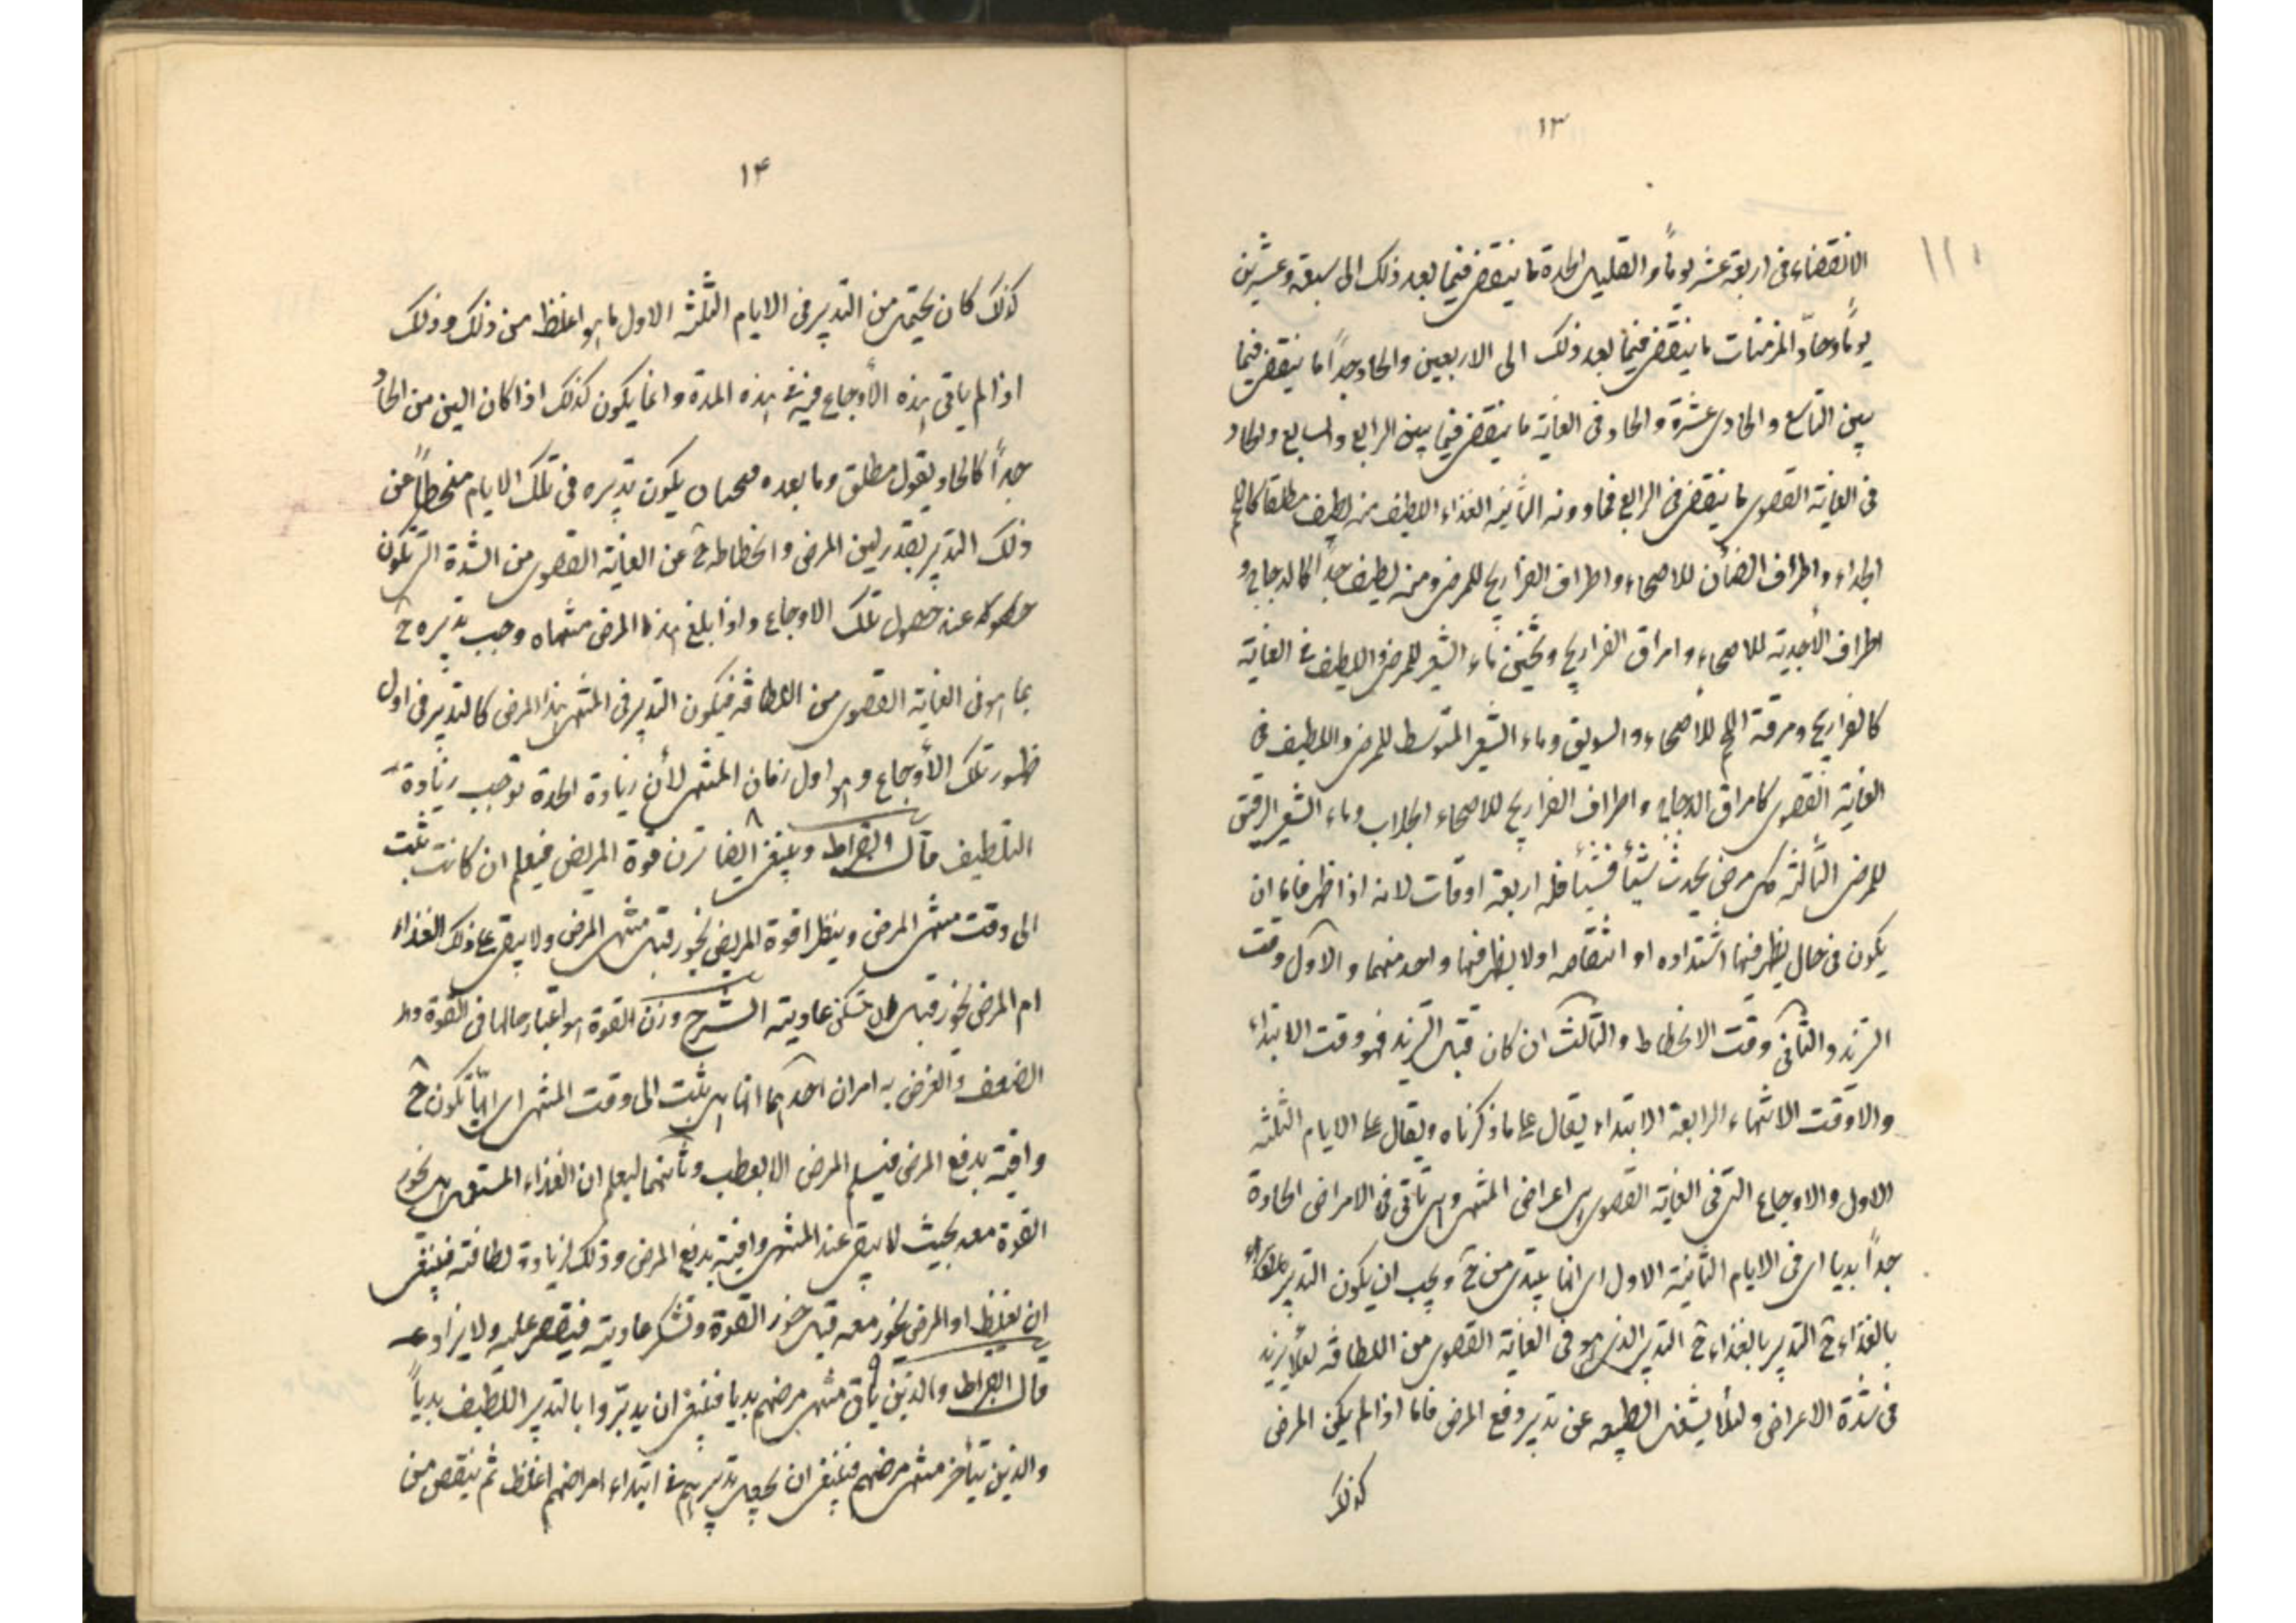 ١٣
الانقضاء فى اربعة عشر يوماً والقليل الحدة ما ينقضى فيما بعد ذلك الى سبعة وعشرين
يوماً وحادّ المزمنات ما ينقضى فيما بعد ذلك الى الاربعين والحاد جداً ما ينقضى فيما
بين التاسع والحادى عشرة والحاد فى الغاية ما ينقضى فيما بين الرابع والسابع والحاد
فى الغاية القصوى ما ينقضى فى الرابع فما دونه الثانية الغذاء اللطيف منه لطيف مطلقا كاللحم
الجداء واطراف الضأن للاصحاء واطراف الفراريج للمرضى ومنه لطيف جداً كالدجاج و
اطراف الأجدية للاصحاء وامراق الفراريج وثخين ماء الشعير للمرضى واللطيف فى الغاية
كالفراريج ومرقة اللحم للأصحاء والسويق وماء الشعير المتوسط للمرضى واللطيف فى
الغاية القصوى كامراق الدجاج واطراف الفراريج للاصحاء الجلاب وماء الشعير الرقيق
للمرضى الثالثة كل مرض يحدث شيئاً فشيئاً فله اربعة اوقات لانه اذا ظهر فاما ان
يكون فى حال يظهر فيها اشتداده او انتقاصه اولا يظهر فيها واحد منهما والاول وقت
التزيد والثانى وقت الانحطاط والثالث ان كان قبل التزيد فهو وقت الابتداء
والا وقت الانتهاء الرابعة الابتداء يقال على ما ذكرناه ويقال على الايام الثلثة
الاول والاوجاع التى فى الغاية القصوى هى اعراض المنتهى وهى تاتى فى الامراض الحادة
جداً بديا اى فى الايام الثلثة الاول اى انها يبتدى من ح ويجب ان يكون التدبير
بالغذاء ح التدبير بالغذاء ح التدبير الذى هو فى الغاية القصوى من اللطافة لئلا يزيد
فى شدة الاعراض ولئلا يشغل الطبيعه عن تدبير دفع المرض فاما اذا لم يكن المرض
كذلك
١٤
كذلك كان يحتمل من التدبير فى الايام الثلثه الاول ما هو اغلظ من ذلك وذلك
اذا لم ياتى هذه الأوجاع فيه فى هذه المدة وانما يكون كذلك اذا كان الين من الحاد
جداً كالحاد بقول مطلق وما بعده يكون تدبيره فى تلك الايام منحطاً عن
ذلك التدبير بقدر لين المرض وانحطاطه ح عن الغاية القصوى من الشدة التى تكون
عند حصول تلك الاوجاع واذا بلغ هذا المرض منتهاه وجب تدبيره ح
بما هو فى الغاية القصوى من اللطافه فيكون التدبير فى المنتهى هذا المرض كالتدبير فى اول
ظهور تلك الأوجاع وهو اول زمان المنتهى لأن زيادة الحدة توجب زيادة
التلطيف قال البقراط ٨ وينبغى ايضا تزن قوة المريض فيعلم ان كانت تثبت
الى وقت منتهى المرض وينظر اقوة المريض يخور قبل منتهى المرض ولا يبقى على ذلك الغذاء
ام المرض يخور قبل تسكن عاديته الشرح وزن القوة هو اعتبار حالها فى القوة و
الضعف والغرض به امران احدهما انها هل تثبت الى وقت المنتهى اى انها تكون ح
وافية بدفع المرض فيسلم المرض الا يعطب وثانيهما ليعلم ان الغذاء المستعمل هل يخور
القوة معه بحيث لا يبقى عند المنتهى وافية بدفع المرض وذلك لزيادة لطافته فينبغى
ان يغلظ او المرض يخور معه قبل خور القوة وتنكسر عاديته فيقتصر عليه ولا يزاد عه
قال البقراط ٩ والذين يأتى منتهى مرضهم بديا فينبغى ان يدبّروا بالتدبير اللطيف بدياً
والذين يتأخر منتهى مرضهم فينبغى ان يجعل تدبيرهم فى ابتداء امراضهم اغلظ ثم ينقص من